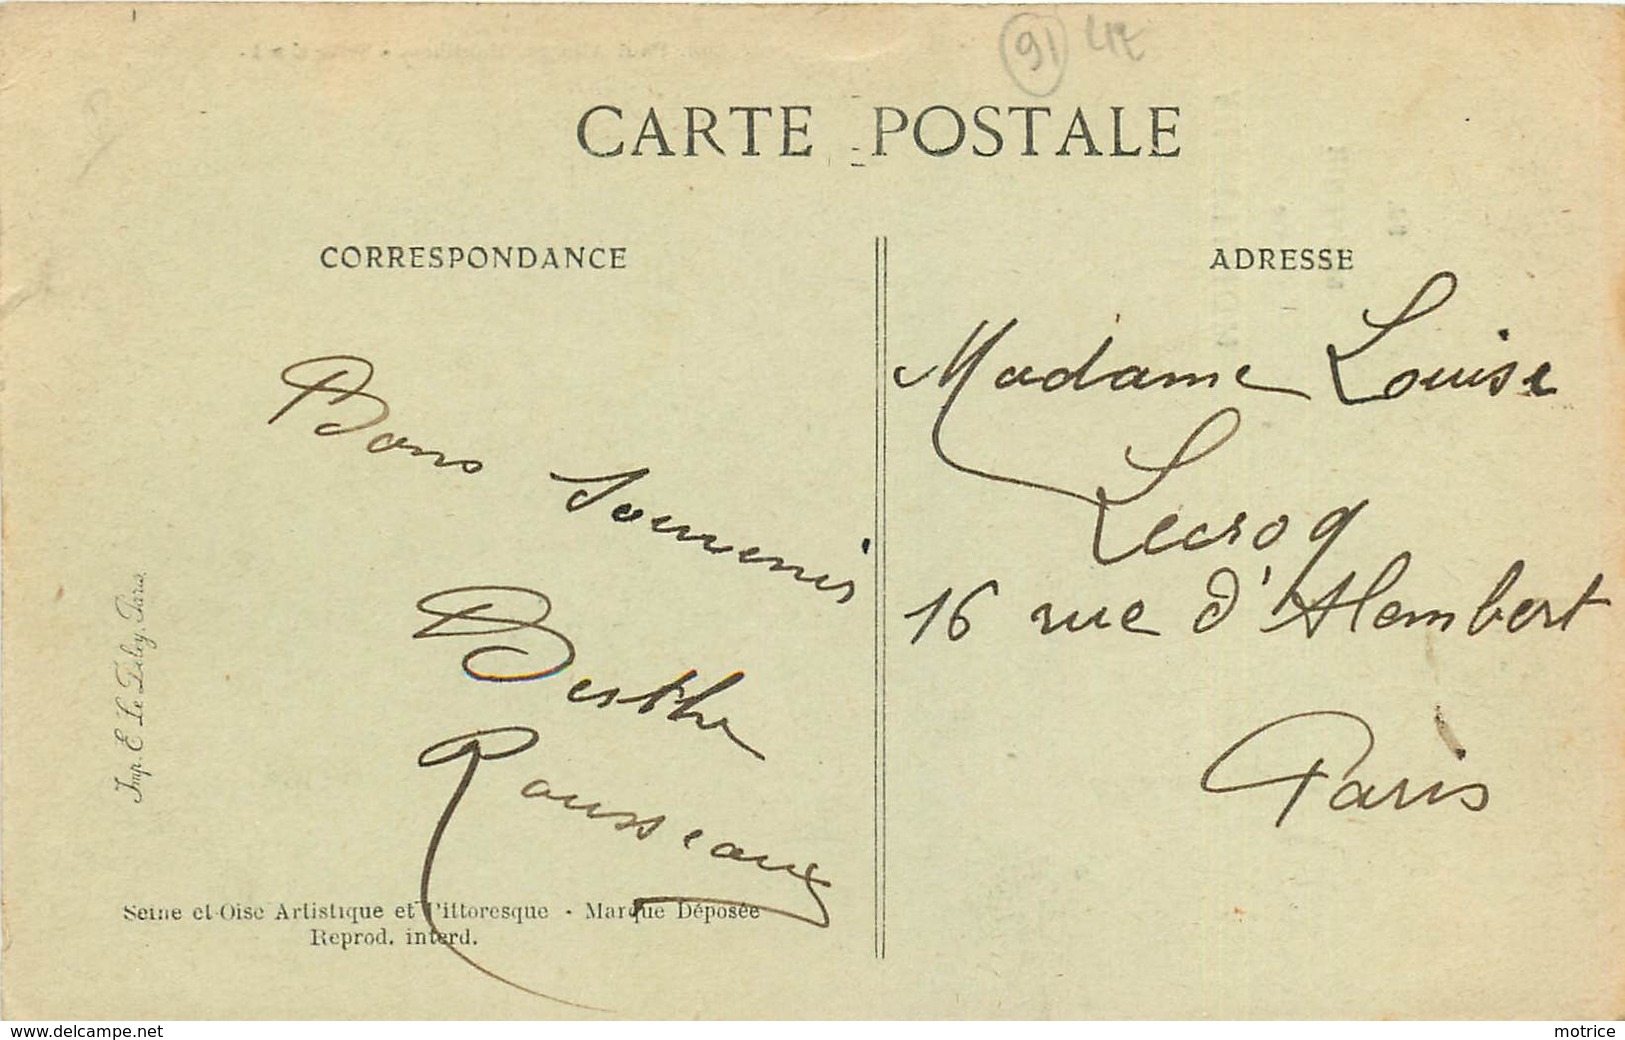 91 47E
CARTE POSTALE
CORRESPONDANCE
Bons souvenirs
Berthe
Rousseaux
Imp. E. Le Deley, Paris.
Seine et Oise Artistique et Pittoresque - Marque Déposée
Reprod. interd.
ADRESSE
Madame Louise
Lecroq
16 rue d'Alembert
Paris
www.delcampe.net
motrice